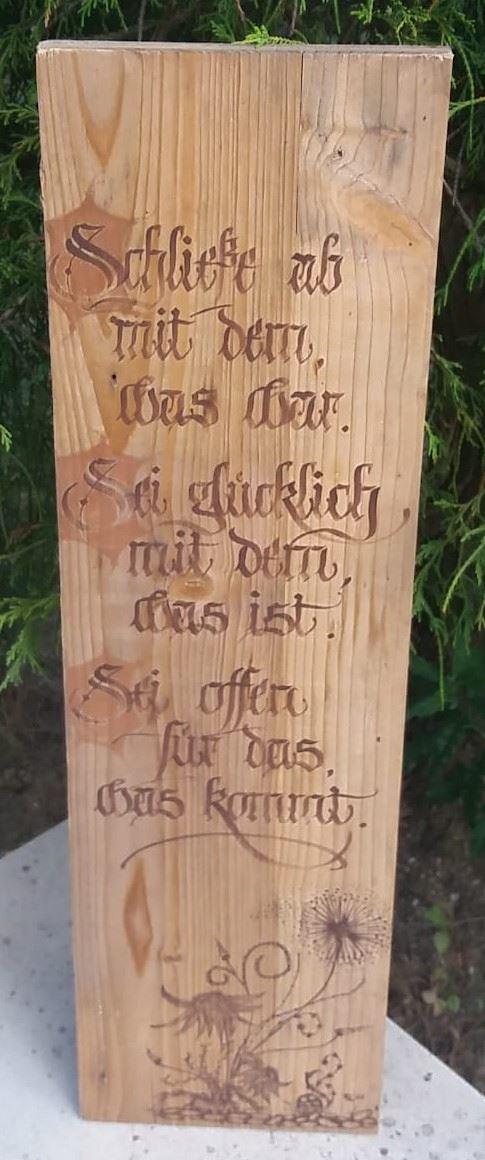 Schließe ab
mit dem,
was war.
Sei glücklich
mit dem,
was ist.
Sei offen
für das,
was kommt.